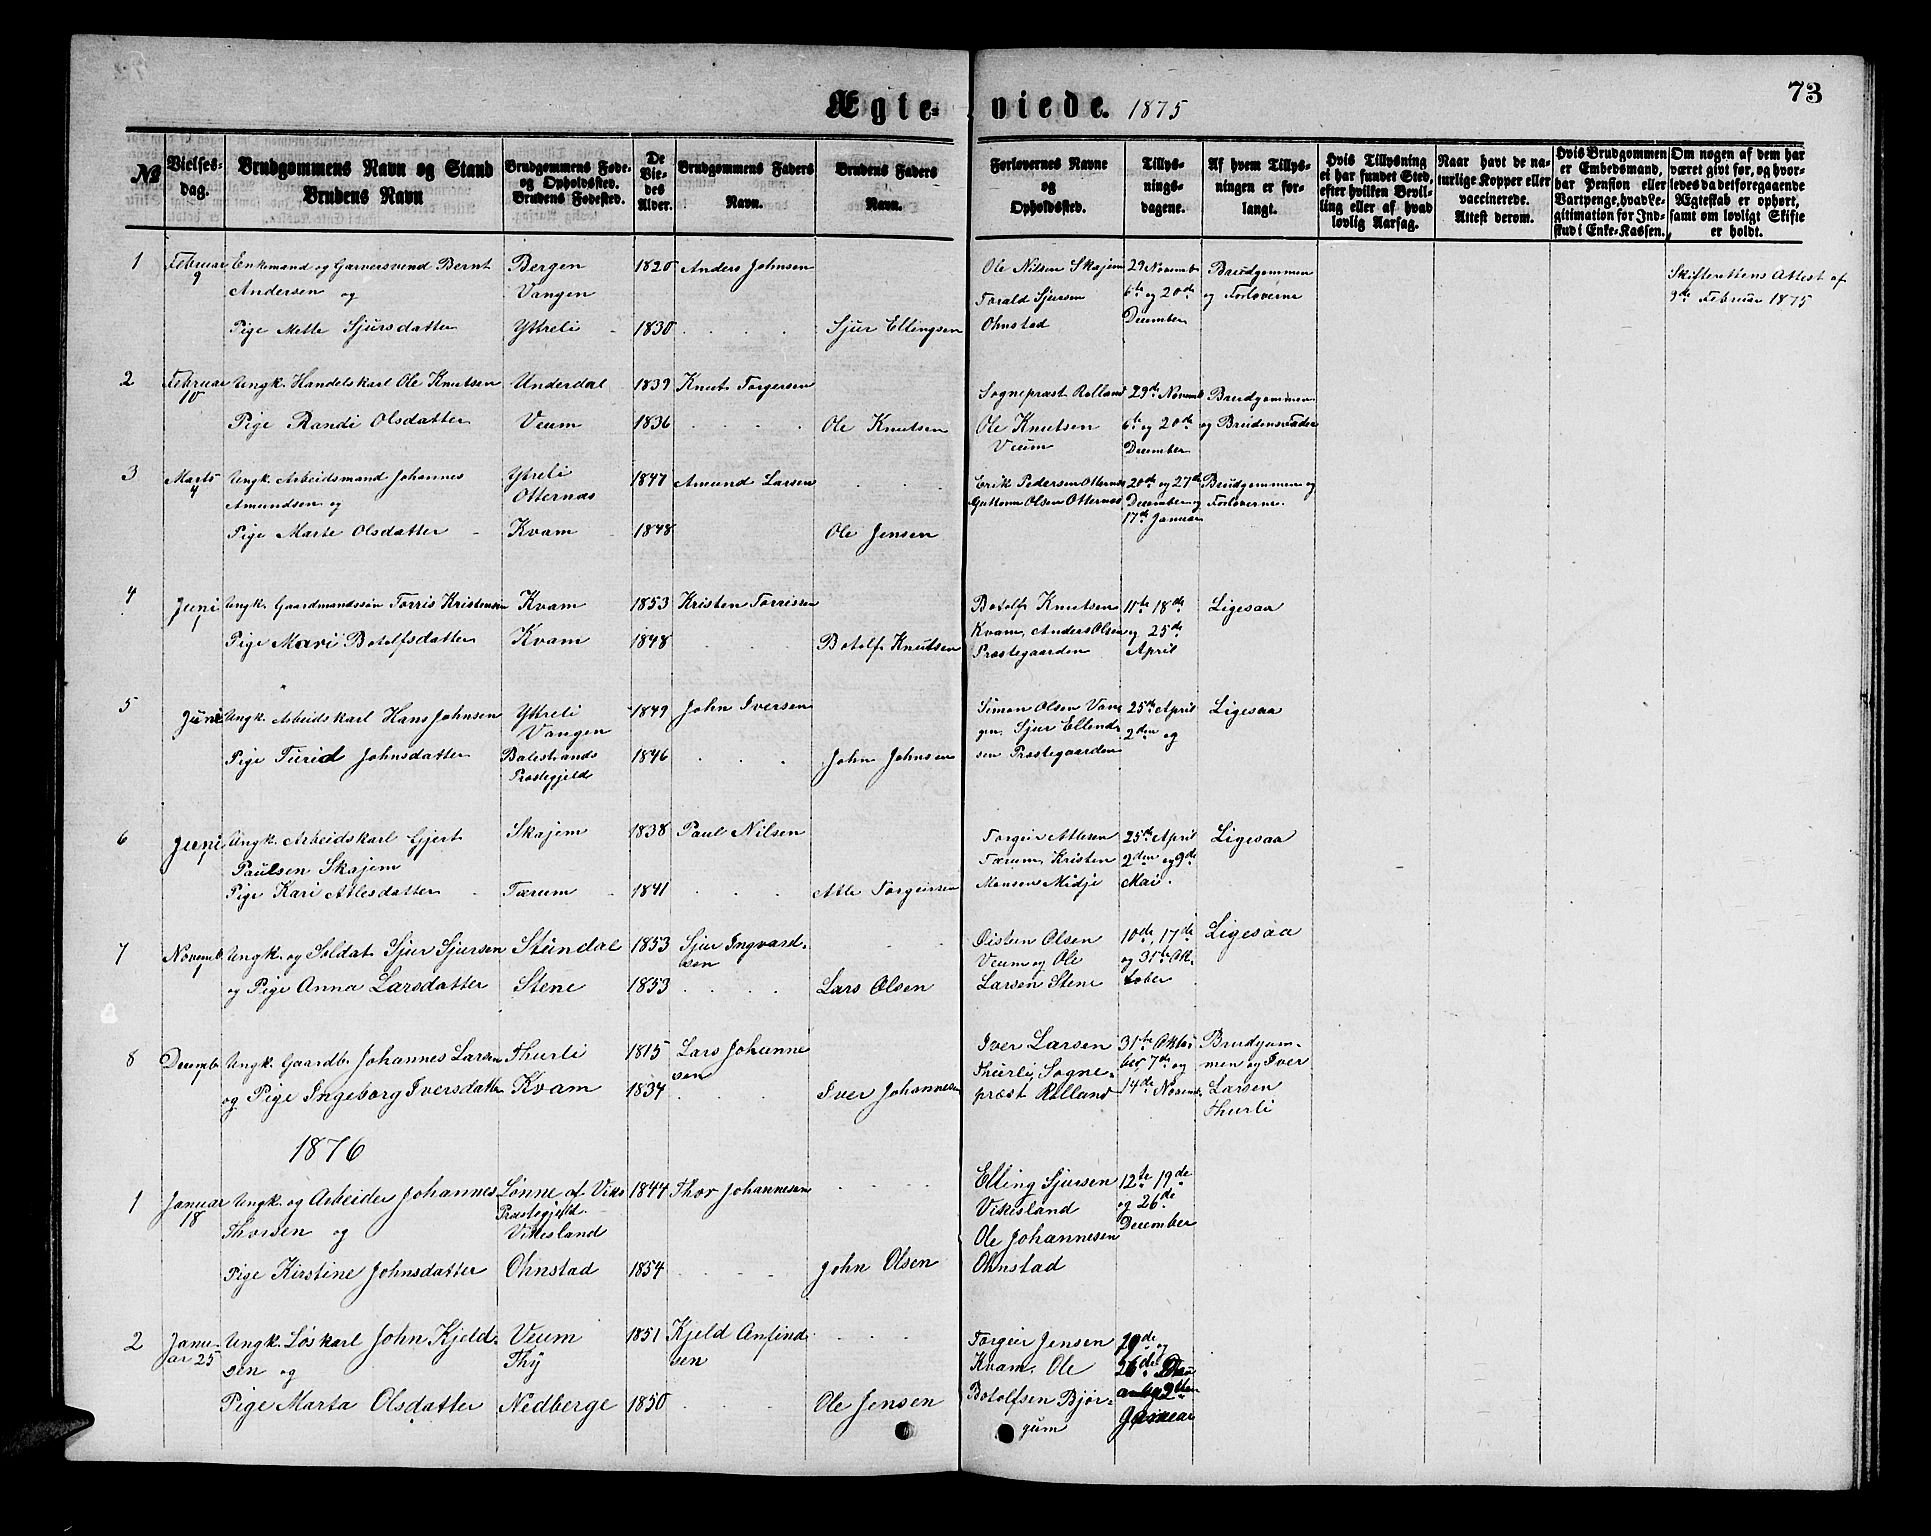 73
Ægte- viede. 1875
No
Vielses-
dag.
Brudgommens Navn og Stand
Brudens Navn
Brudgommens Føde-
og Opholdssted.
Brudens Fødested.
De
Vie-
des
Alder.
Brudgommens Faders
Navn.
Brudens Faders
Navn.
Forlovernes Navne
og
Opholdssted.
Tillys-
nings-
dagene.
Af hvem Tillys-
ningen er for-
langt.
Hvis Tillysning
ei har fundet Sted,
efter hvilken Bevil-
ling eller af hvad
lovlig Aarsag.
Naar havt de na-
turlige Kopper eller
vaccinerede.
Attest derom.
Hvis Brudgommen
er Embedsmand,
har Pension eller
Vartpenge, hvad Le-
gitimation for Ind-
skud i Enke-Kassen.
Om nogen af dem har
været givt før, og hvor-
ledes da det foregaaende
Ægteskab er ophørt,
samt om lovligt Skifte
er holdt.
1 Februar 9 Enkemand og Garversvend Bernt
Andersen og
Bergen
Vangen
1820 Anders Johnsen
Pige Mette Sjursdatter Yttreli 1830 Sjur Ellingsen
Ole Nilsen Skajem
Torald Sjursen
Ohnstad
29 Novemb
6te og 20de
December
Brudgommen
og Forloverne
Skifterettens Attest af
9de Februar 1875
2 Februar 10 Ungk. Handelskarl Ole Knutsen Underdal 1839 Knut Torgersen
Pige Randi Olsdatter Veum 1836 Ole Knutsen
Sogneprest Rolland
Ole Knutsen
Veum
29de Novemb
6te og 20de
December
Brudgommen
og Brudens Fader
3 Marts 4 Ungk. Arbeidsmand Johannes
Amundsen og
Yttreli
Otternæs
1847 Amund Larsen
Pige Marte Olsdatter Kvam 1848 Ole Jensen
Erik Pedersen Otternes
Guttorm Olsen Otternæs
20de og 27de
December og
17de Januar
Brudgommen og
Forloverne.
4 Juni 1 Ungk. Gaardmandssøn Torris Kristensen Kvam 1853 Kristen Torrissen
Pige Mari Botolfsdatter Kvam 1848 Botolf Knutsen
Botolf Knutsen
Kvam, Anders Olsen
Præstegaarden
11te 18de
og 25de
April
Ligesaa
5 Juni Ungk. Arbeidskarl Hans Johnsen Yttreli
Vangen
1849 John Iversen
Pige Turid Johnsdatter Balestrands
Præstegjeld
1846 John Johnsen
Simon Olsen Van
gen. Sjur Ellend
sen Præstegaarden
25de April
2den og
Ligesaa
6 Juni 1 Ungk. Arbeidskarl Gjert
Paulsen Skajem
Skajem 1838 Paul Nilsen
Pige Kari Atlesdatter Tærum 1841 Atle Torgeirsen
Torgeir Atlesen
Tærum, Kristen
Monsen Midje
25de April
2den og 9de
Mai.
Ligesaa
7 Novemb 1 Ungk. og Soldat Sjur Sjursen Stundal 1853 Sjur Ingvard-
sen
og Pige Anna Larsdatter Stene 1853 Lars Olsen
Øistein Olsen
Veum og Ole
Larsen Stene
10de, 17de
og 31te Ok
tober
Ligesaa
8 Decemb 1 Ungk. Gaardb. Johannes Larsen Thurli 1815 Lars Johanne
sen
og Pige Ingeborg Iversdatter Kvam 1834 Iver Johannesen
Iver Larsen
Thurli, Sogne-
præst Rolland
31te Okto
ber 7de og
14de Novemb.
Brudgom-
men og Iver
Larsen
Thurli
1876
1 Januar 18 Ungk. og Arbeider Johannes
Thorsen og
Lønne af Viks
Præstegjeld
Vikesland
1844 Thor Johannesen
Pige Kirstine Johnsdatter Ohnstad 1854 John Olsen
Elling Sjursen
Vikesland
Ole Johannesen
Ohnstad
12te 19de
og 26de
December
2 Janu-
ar 25 Ungk. Løskarl John Kjeld-
sen og
Veum
Thy
1851 Kjeld Anfind
sen
Pige Marta Olsdatter Nedberge 1850 Ole Jensen
Torgeir Jensen
Kvam. Ole
Botolfsen Bjør-
gum
19de og
26de
Januar